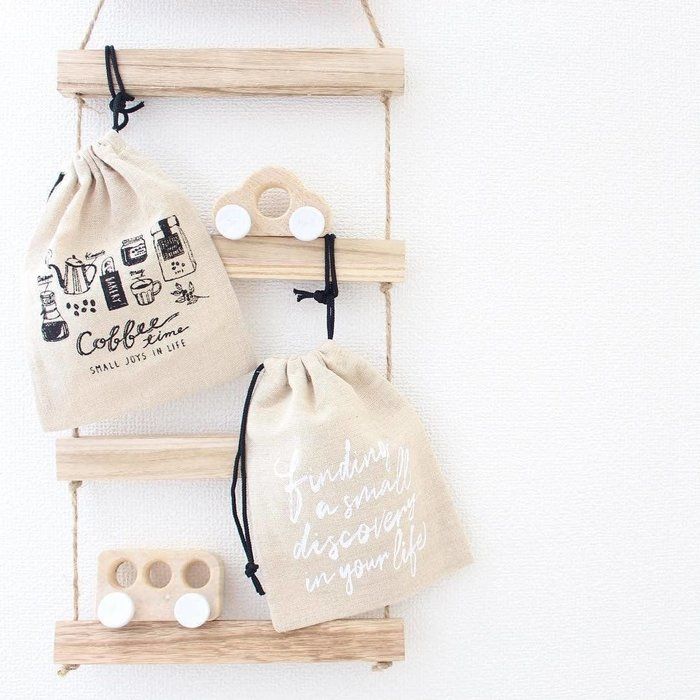 BAKERY
Coffee
time
SMALL JOYS IN LIFE
finding
a small
discovery
in your life